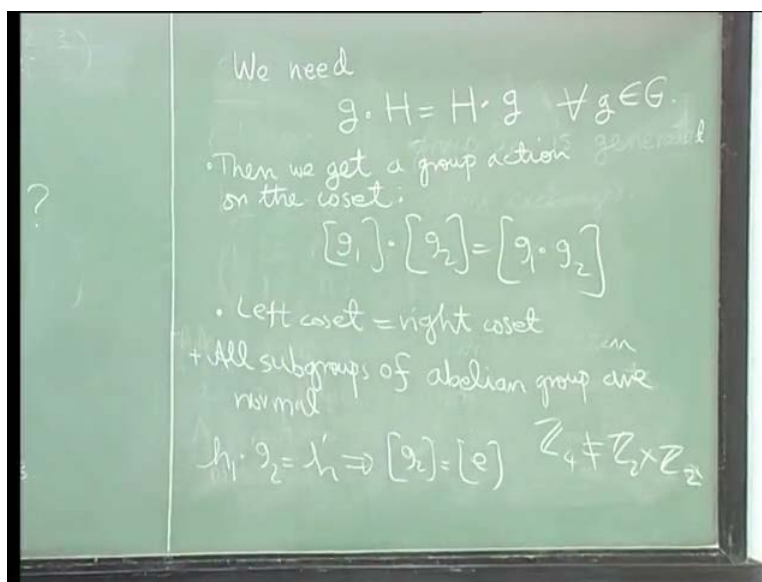 We need
g · H = H · g ∀ g ∈ G.
· Then we get a group action
on the coset:
[g₁] · [g₂] = [g₁ · g₂]
· Left coset = right coset
+ All subgroups of abelian group are
normal
h₁ · g₂ = h' ⇒ [g₂] = [e] ℤ₄ ≠ ℤ₂ × ℤ₂
?